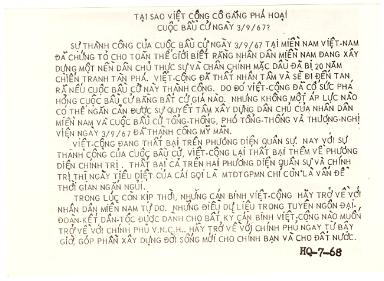 TẠI SAO VIỆT CỘNG CỐ GẮNG PHÁ HOẠI
CUỘC BẦU CỬ NGÀY 3/9/67?
SỰ THÀNH CÔNG CỦA CUỘC BẦU CỬ NGÀY 3/9/67 TẠI MIỀN NAM VIỆT-NAM
ĐÃ CHỨNG TỎ CHO TOÀN THẾ GIỚI BIẾT RẰNG NHÂN DÂN MIỀN NAM ĐANG XÂY
DỰNG MỘT NỀN DÂN CHỦ THỰC SỰ VÀ CHÂN CHÍNH MẶC DẦU ĐÃ BỊ 20 NĂM
CHIẾN TRANH TÀN PHÁ. VIỆT-CỘNG ĐÃ THẤT NHÂN TÂM VÀ SẼ ĐI ĐẾN TAN
RÃ NẾU CUỘC BẦU CỬ NÀY THÀNH CÔNG. DO ĐÓ VIỆT-CỘNG ĐÃ CỐ SỨC PHÁ
HỎNG CUỘC BẦU CỬ BẰNG BẤT CỨ GIÁ NÀO. NHƯNG KHÔNG MỘT ÁP LỰC NÀO
CÓ THỂ NGĂN CẢN ĐƯỢC SỰ QUYẾT TÂM XÂY DỰNG DÂN CHỦ CỦA NHÂN DÂN
MIỀN NAM VÀ CUỘC BẦU CỬ TỔNG-THỐNG, PHÓ TỔNG-THỐNG VÀ THƯỢNG-NGHỊ
VIỆN NGÀY 3/9/67 ĐÃ THÀNH CÔNG MỸ MÃN.
VIỆT-CỘNG ĐANG THẤT BẠI TRÊN PHƯƠNG DIỆN QUÂN SỰ. NAY VỚI SỰ
THÀNH CÔNG CỦA CUỘC BẦU CỬ, VIỆT-CỘNG LẠI THẤT BẠI THÊM VỀ PHƯƠNG
DIỆN CHÍNH TRỊ. THẤT BẠI CẢ TRÊN HAI PHƯƠNG DIỆN QUÂN SỰ VÀ CHÍNH
TRỊ THÌ NGÀY TIÊU DIỆT CỦA CÁI GỌI LÀ MTDTGPMN CHỈ CÒN LÀ VẤN ĐỀ
THỜI GIAN NGẮN NGỦI.
TRONG LÚC CÒN KỊP THỜI, NHỮNG CÁN BINH VIỆT-CỘNG HÃY TRỞ VỀ VỚI
NHÂN DÂN MIỀN NAM TỰ DO. NHỮNG ĐIỀU DỰ LIỆU TRONG TUYÊN NGÔN ĐẠI-
ĐOÀN-KẾT DÂN-TỘC ĐƯỢC DANH CHO BẤT KỲ CÁN BINH VIỆT-CỘNG NÀO MUỐN
TRỞ VỀ VỚI CHÍNH PHỦ V.N.C.H.. HÃY TRỞ VỀ VỚI CHÍNH PHỦ NGAY TỪ BÂY
GIỜ, GÓP PHẦN XÂY DỰNG ĐỜI SỐNG MỚI CHO CHÍNH BẠN VÀ CHO ĐẤT NƯỚC.
HQ-7-68